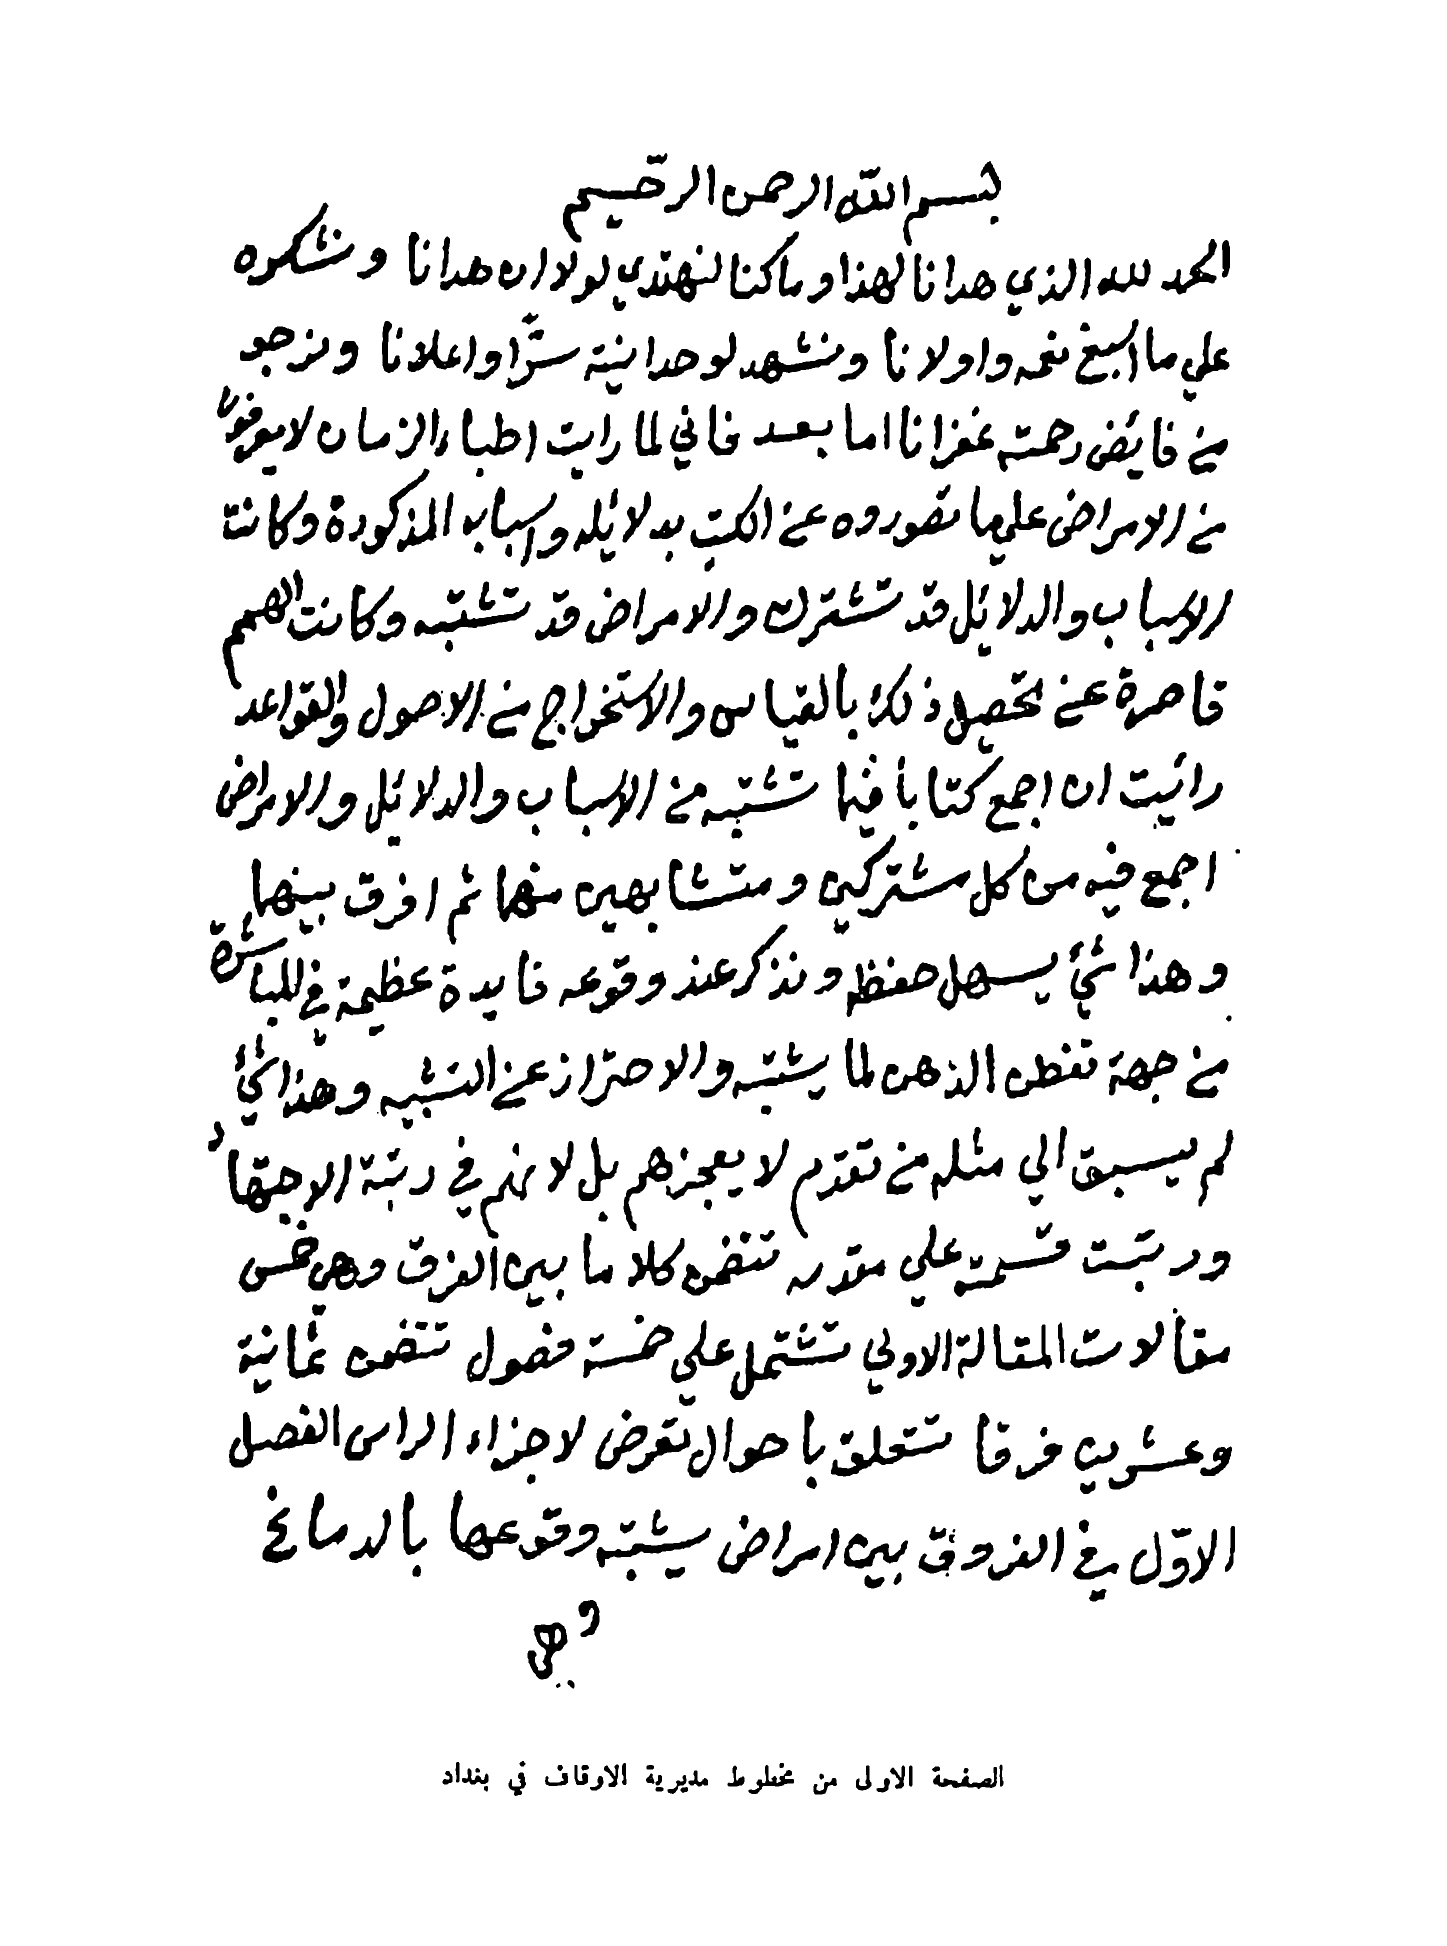 بسم الله الرحمن الرحيم
الحمد لله الذي هدانا لهذا وما كنا لنهتدي لولا ان هدانا ونشكره
علي ما اسبغ نعمه واولانا ونشهد لوحدانيته سرًّا واعلانا ونرجو
من فايض رحمته غفرانا اما بعد فاني لما رايت اطباء الزمان لا يعرفون
من الامراض علي ما تصوروه عن الكتب بدلائله واسبابه المذكورة وكانت
الاسباب والدلائل قد تشترك والامراض قد تشتبه وكانت الهمم
قاصرة عن تحصيل ذلك بالقياس والاستخراج من الاصول والقواعد
رائيت ان اجمع كتاباً فيما تشتبه من الاسباب والدلائل والامراض
اجمع فيه من كل مشتركين ومتشابهين منها ثم افرق بينهما
وهذا شئ يسهل حفظه ونذكر عند وقوعه فايدة عظيمة في المباشرة
من جهة تفطن الذهن لما يشتبه والاحتراز عن التشبيه وهذا شئ
لم يسبق الي مثله من تقدم لا بعجزهم بل لانهم في رتبة الاجتهاد
ورتبت قسمته علي مقدمه تتضمن كلاما بين الفرق وهي خمس
مقالات المقالة الاولي تشتمل علي خمسة فصول تتضمن ثمانية
وعشرين فرقا تتعلق باحوال تعرض لاجزاء الراس الفصل
الاوّل في الفروق بين امراض يشتبه وقوعها بالدماغ
وهي
الصفحة الاولى من مخطوط مديرية الاوقاف في بغداد